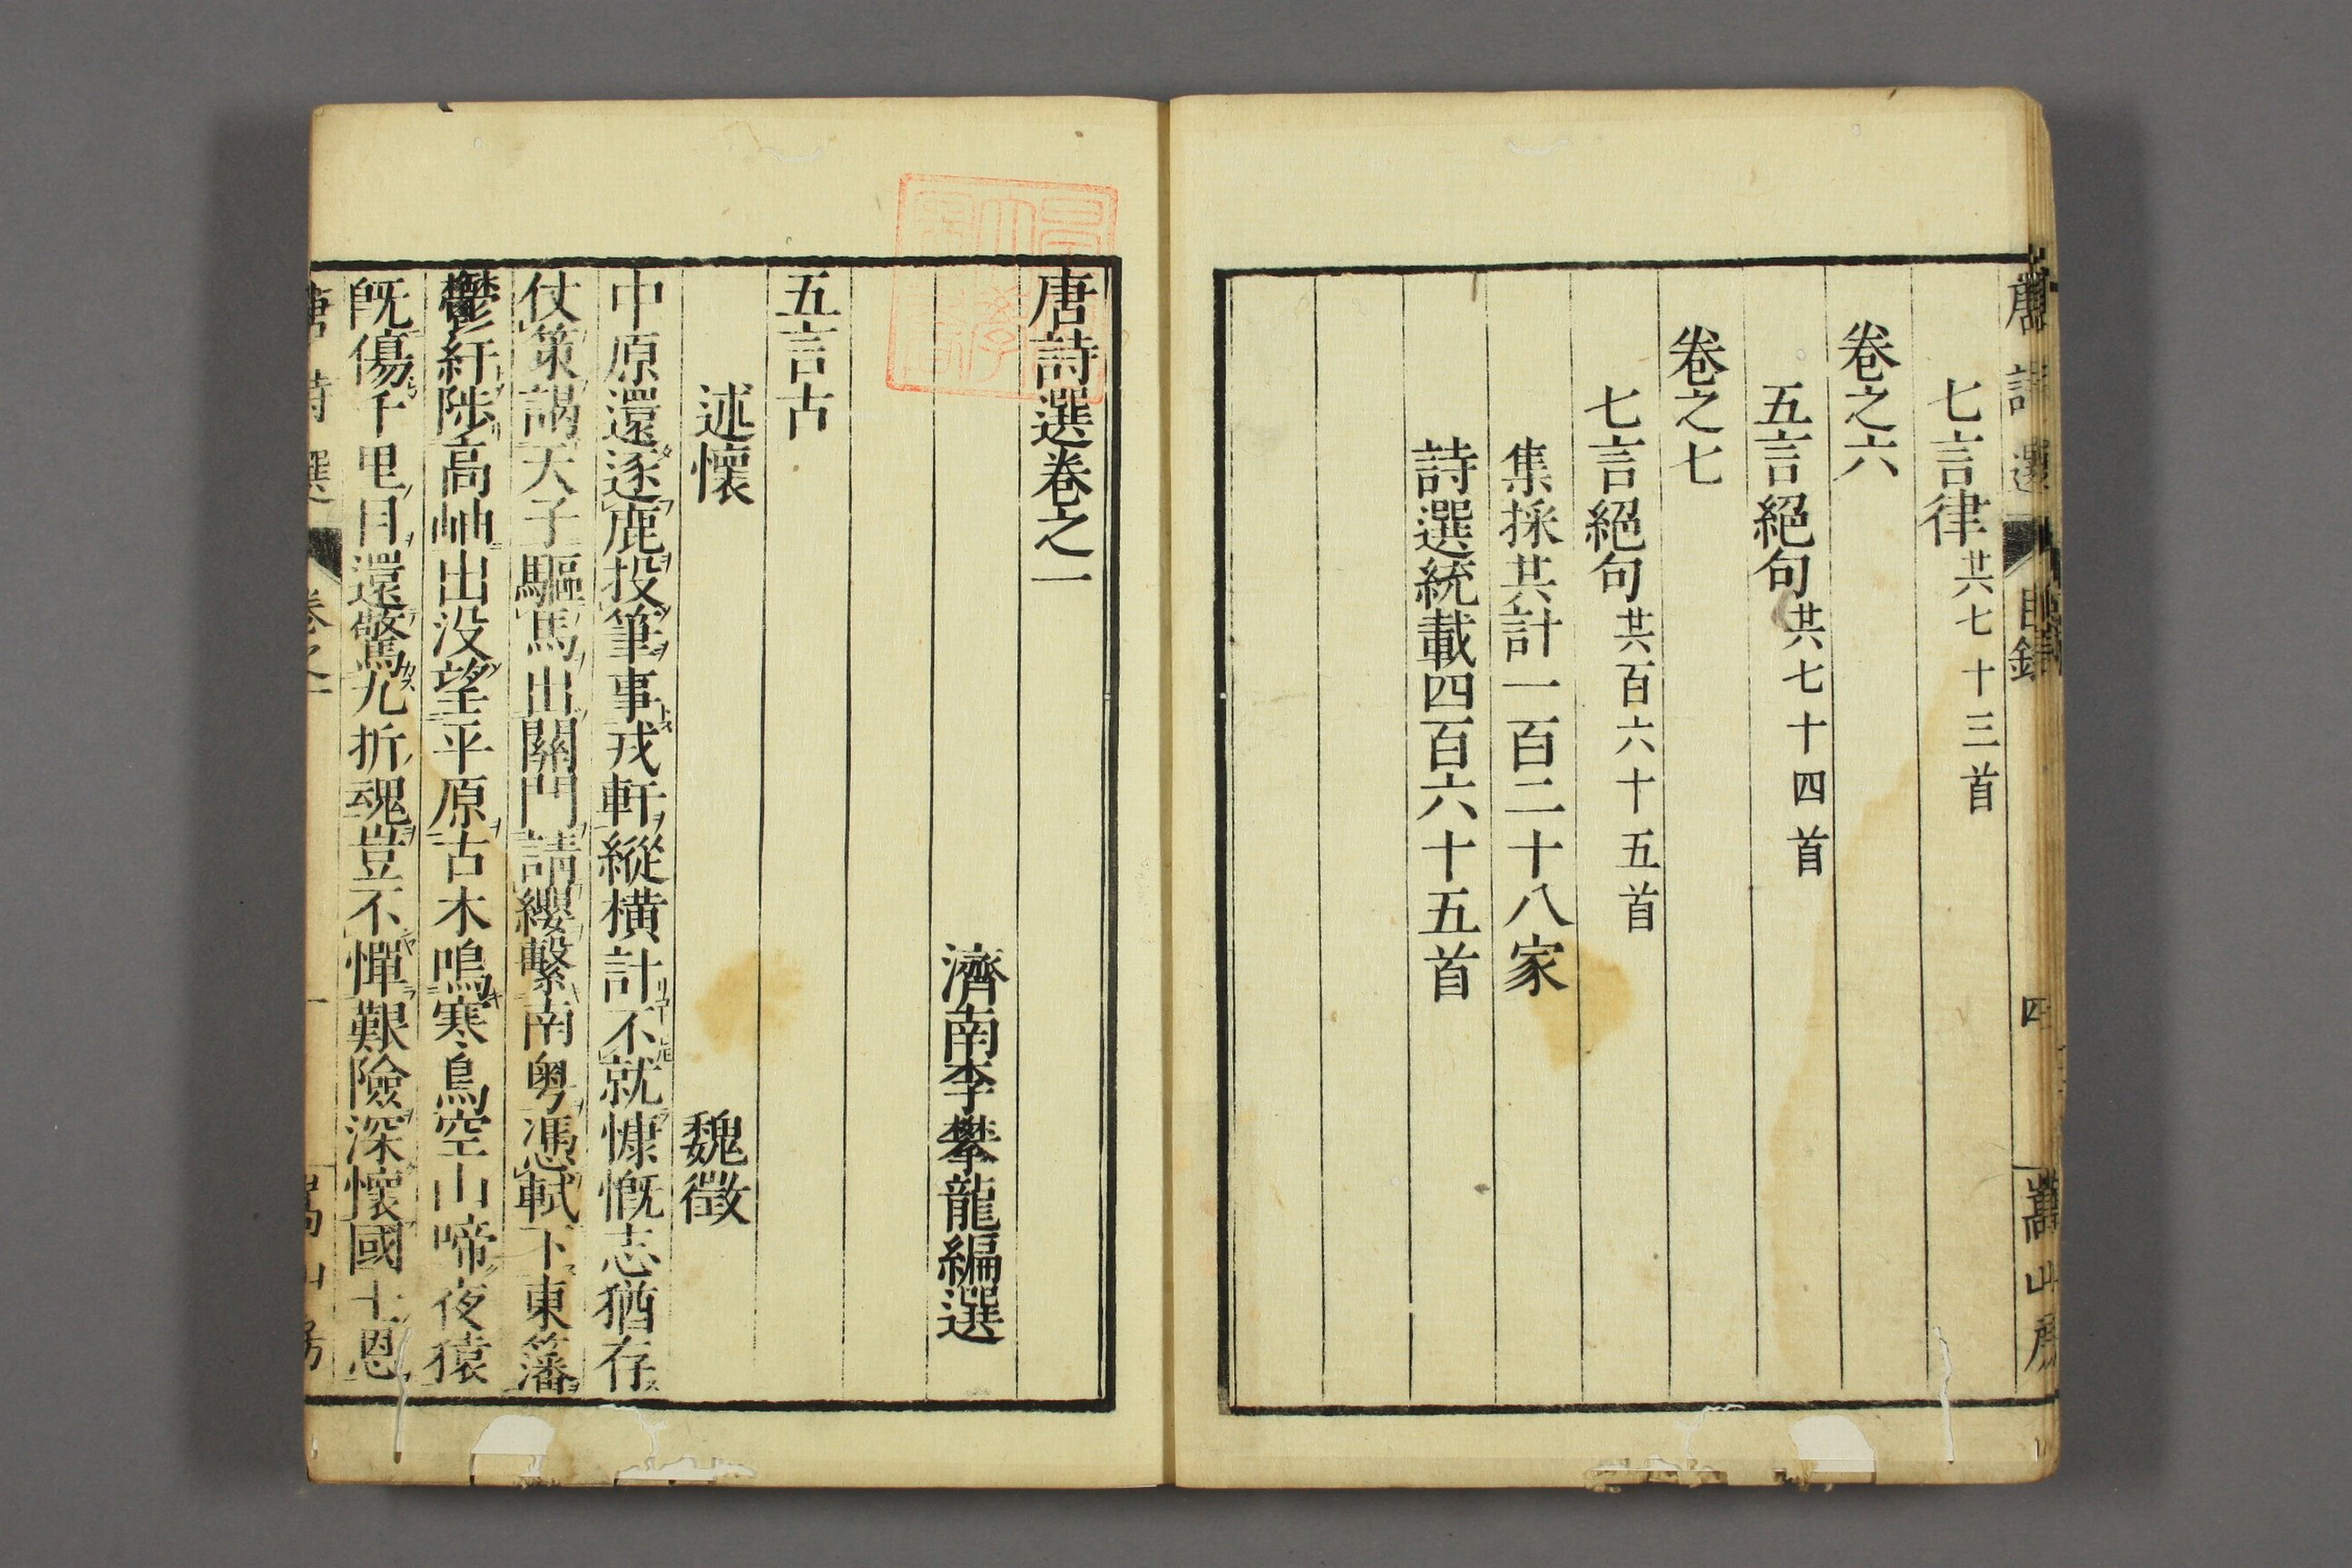 唐詩選 目錄 四
七言律共七十三首
卷之六
五言絕句共七十四首
卷之七
七言絕句共百六十五首
集採共計一百二十八家
詩選統載四百六十五首
唐詩選卷之一
濟南李攀龍編選
五言古
述懷 魏徵
中原還逐鹿投筆事戎軒縱橫計不就慷慨志猶存
仗策謁天子驅馬出關門請纓繫南粵憑軾下東籓
鬱紆陟高岫出没望平原古木鳴寒鳥空山啼夜猿
旣傷千里目還驚九折魂豈不憚艱險深懷國士恩
唐詩選 卷之一 一 嵩山房